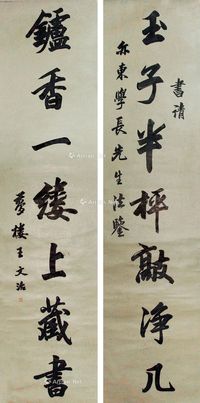 書請
玉子半枰敲净几
亦東學長先生法鑒
鑪香一縷上藏書
夢樓王文治